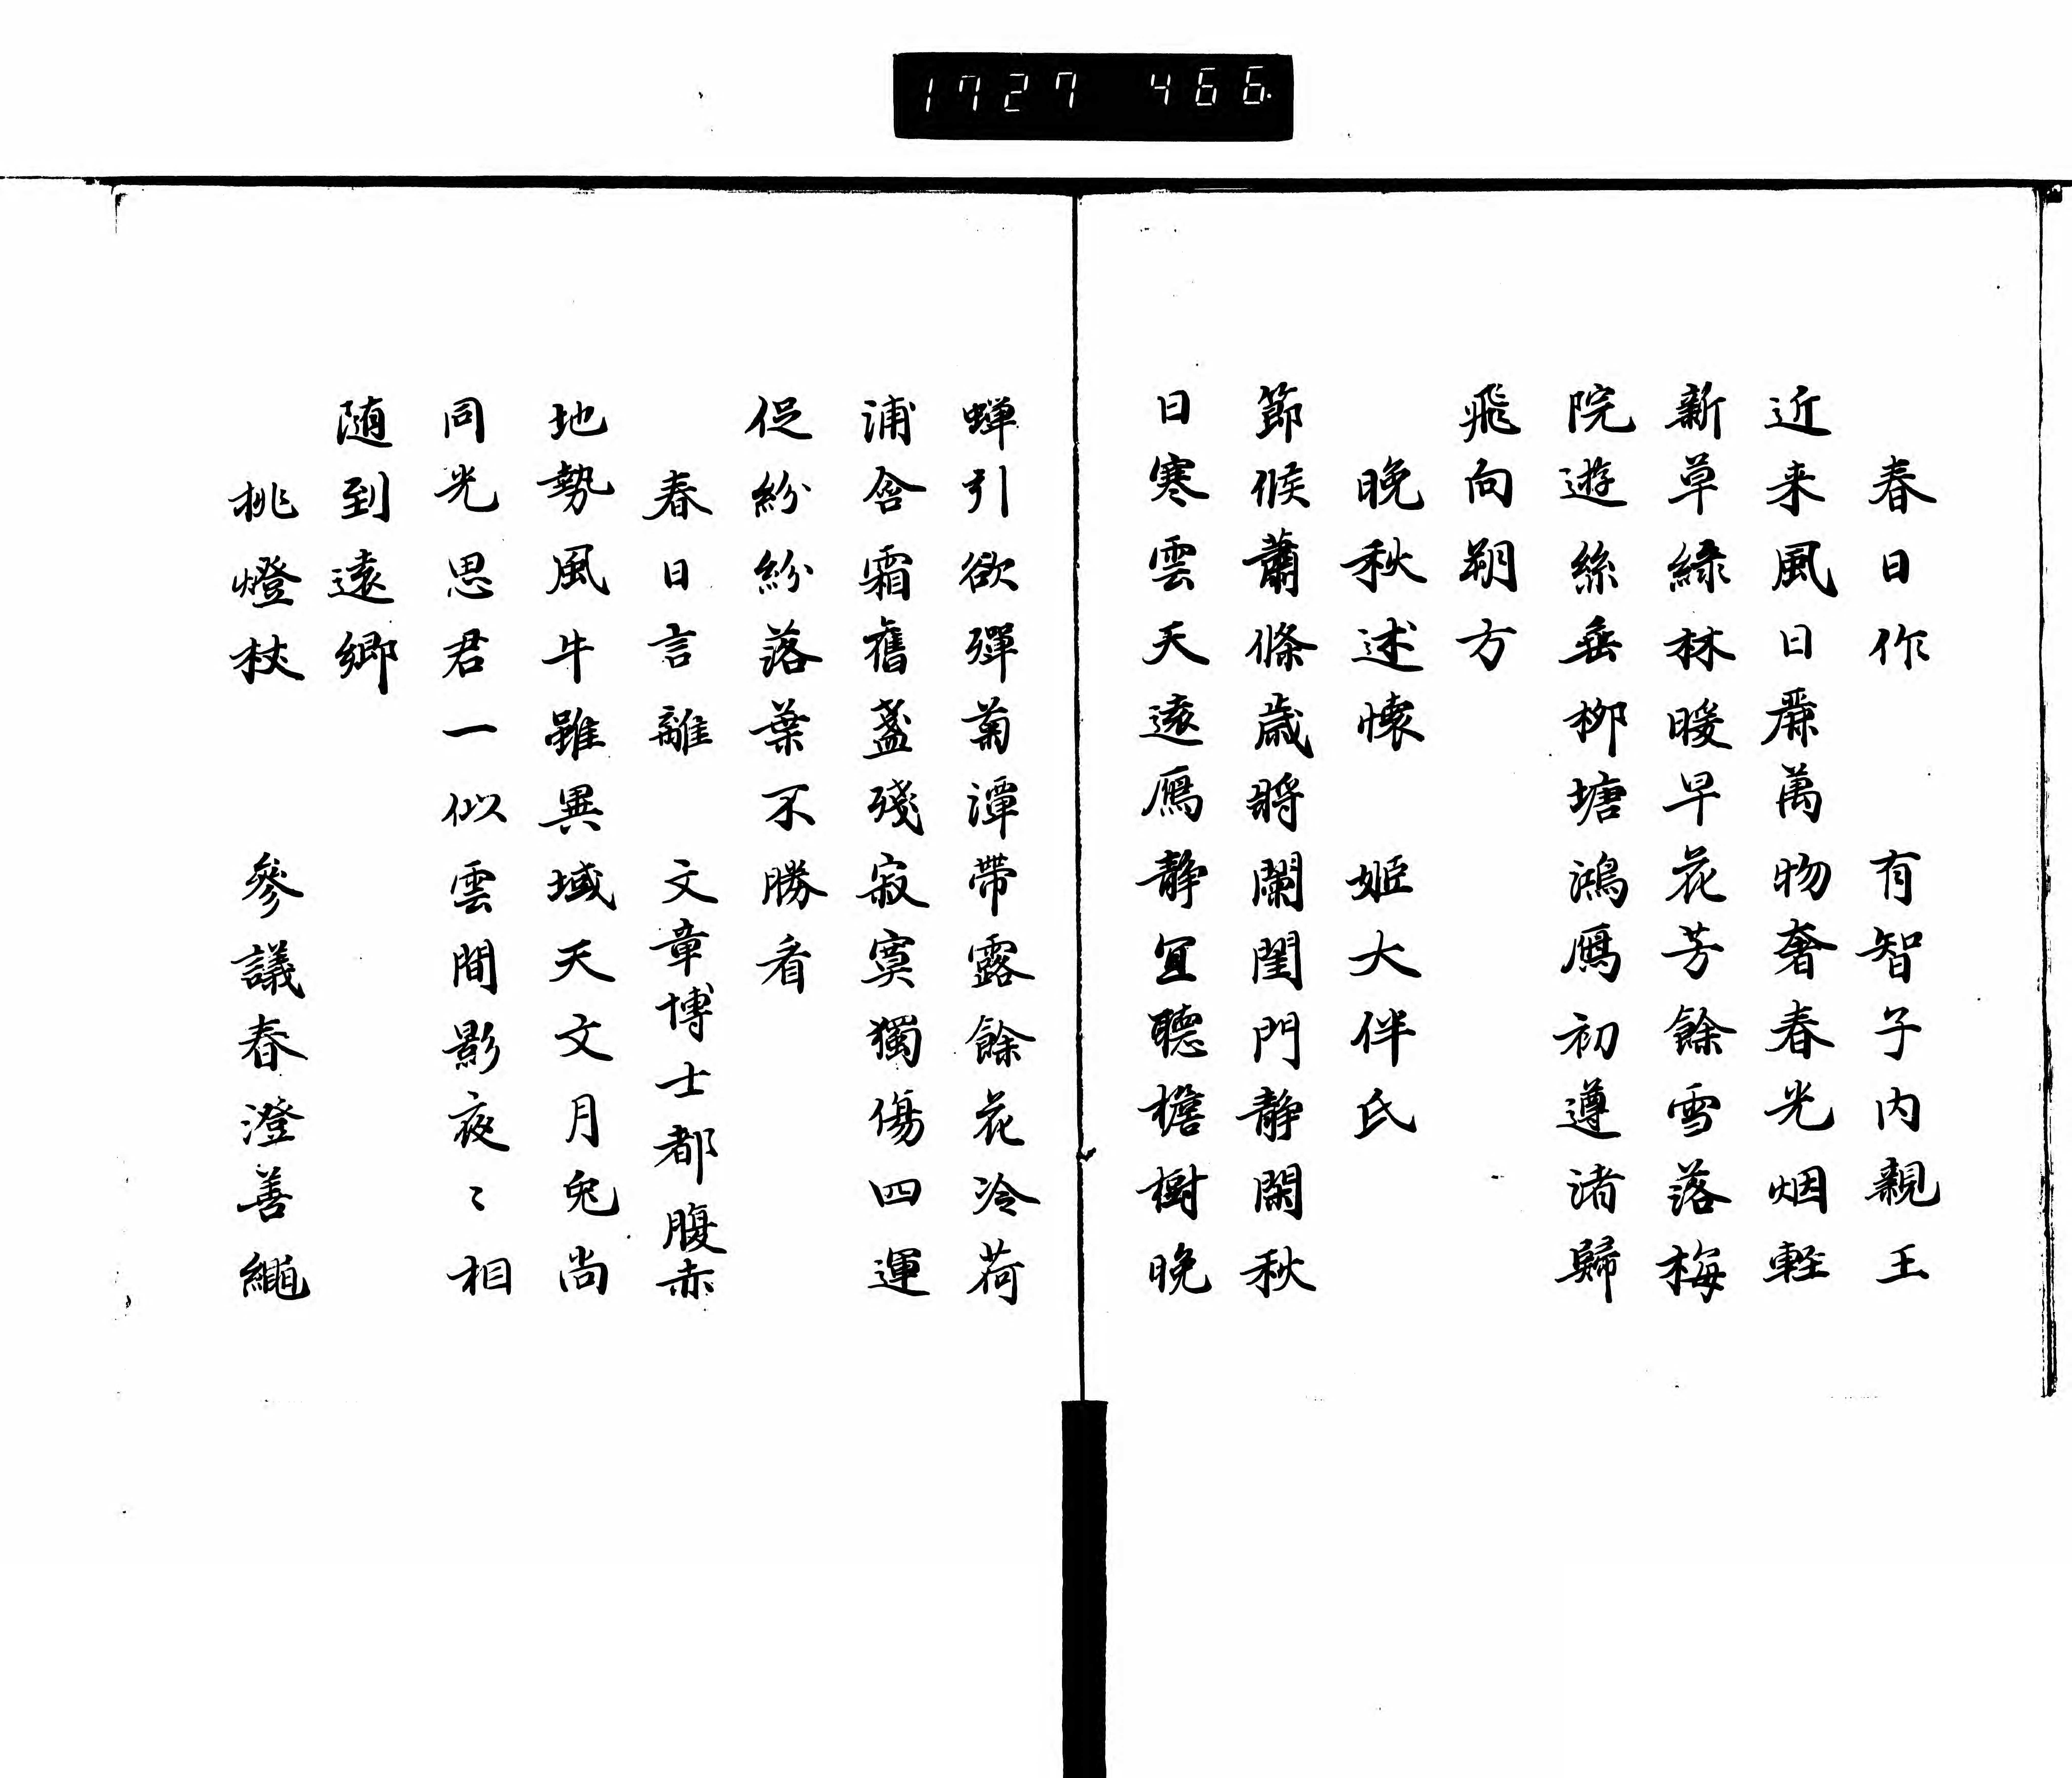 1727 466
春日作 有智子内親王
近来風日麗萬物奢春光烟軽
新草緑林暖早花芳餘雪落梅
院遊絲垂柳塘鴻鴈初遵渚歸
飛向朔方
晩秋述懐 姫大伴氏
節候蕭條歳將闌閨門静閑秋
日寒雲天遠鴈静宜聽檐樹晩
蝉引欲殫菊潭帶露餘花冷荷
浦含霜舊盞殘寂寞獨傷四運
促紛紛落葉不勝看
春日言離 文章博士都腹赤
地勢風牛雖異域天文月兔尚
同光思君一似雲間影夜〻相
随到遠郷
挑燈杖 參議春澄善繩